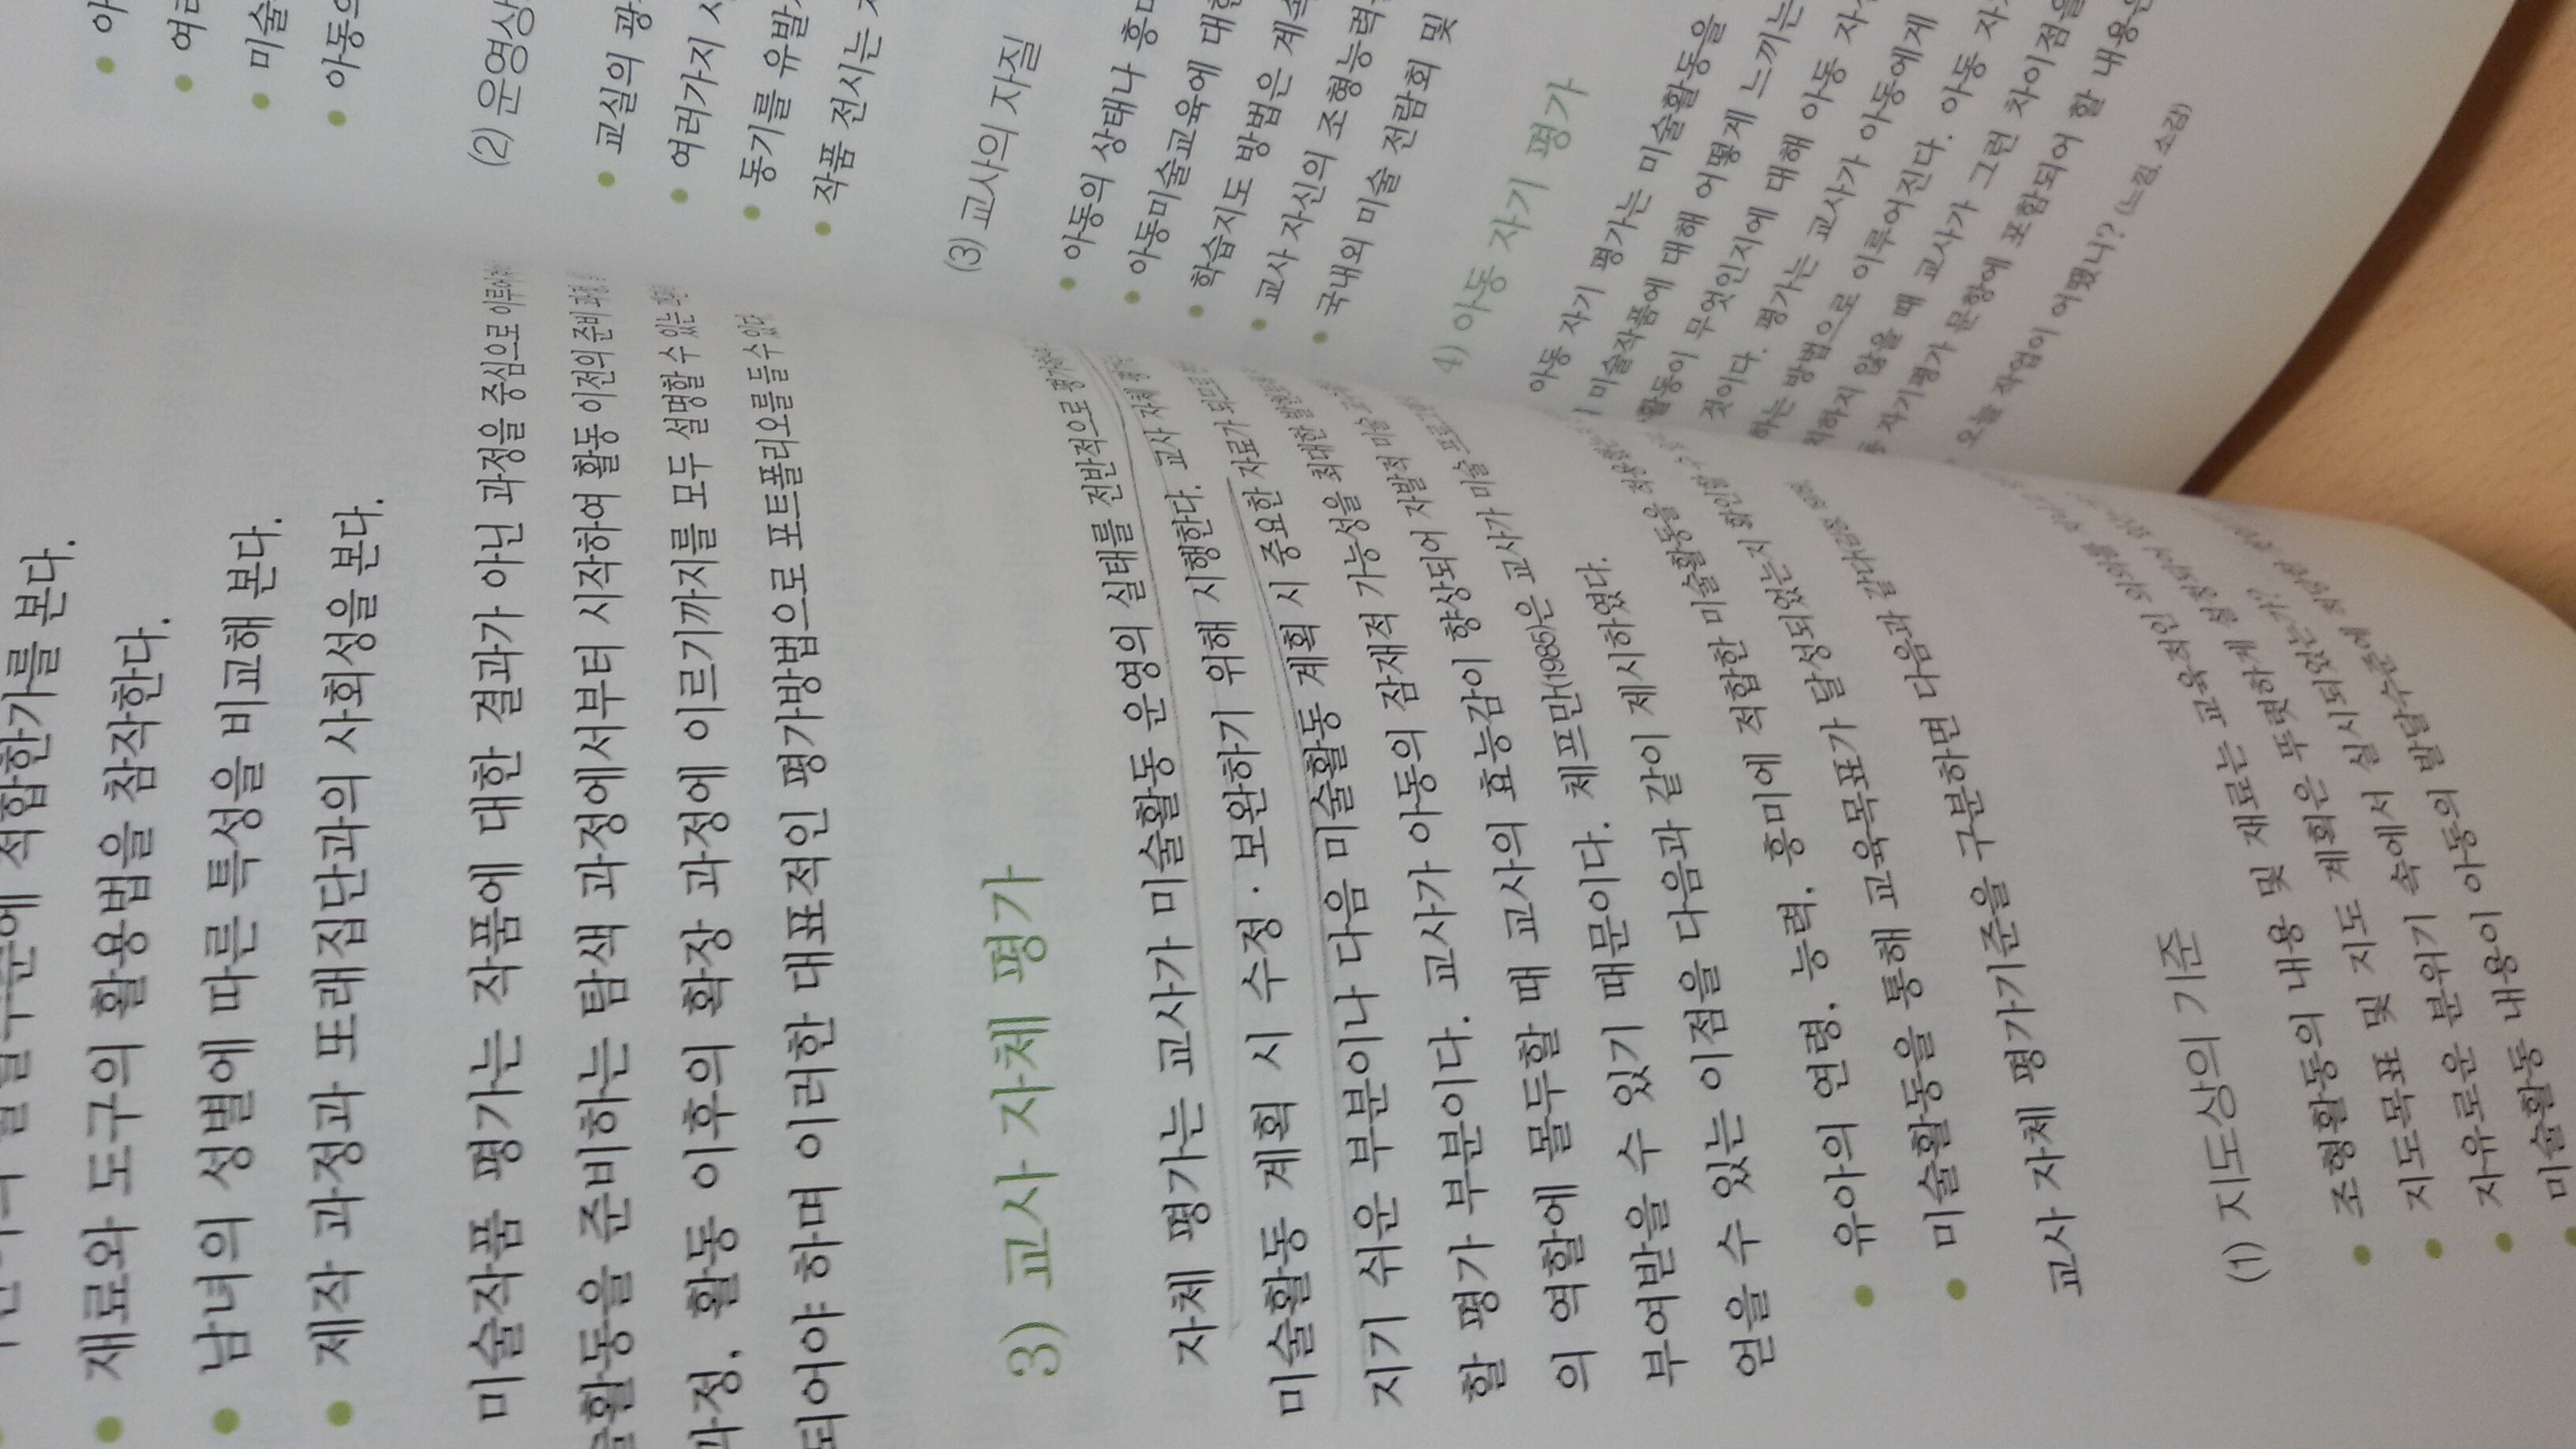 적합한가를 본다.
• 재료와 도구의 활용법을 참작한다.
• 남녀의 성별에 따른 특성을 비교해 본다.
• 제작 과정과 또래집단과의 사회성을 본다.
미술작품 평가는 작품에 대한 결과가 아닌 과정을 중심으로
술활동을 준비하는 탐색 과정에서부터 시작하여 활동 이전의 준비
과정, 활동 이후의 확장 과정에 이르기까지를 모두 설명할 수 있는
되어야 하며 이러한 대표적인 평가방법으로 포트폴리오를 들 수 있다
3) 교사 자체 평가
자체 평가는 교사가 미술활동 운영의 실태를 전반적으로
미술활동 계획 시 수정·보완하기 위해 시행한다. 교사 자체
지기 쉬운 부분이나 다음 미술활동 계획 시 중요한 자료가
할 평가 부분이다. 교사가 아동의 잠재적 가능성을 최대한
의 역할에 몰두할 때 교사의 효능감이 향상되어 자발적 미술
부여받을 수 있기 때문이다. 체프만(1985)은 교사가 미술
얻을 수 있는 이점을 다음과 같이 제시하였다.
• 유아의 연령, 능력, 흥미에 적합한 미술활동을
• 미술활동을 통해 교육목표가 달성되었는지
교사 자체 평가기준을 구분하면 다음과 같다
(1) 지도상의 기준
• 조형활동의 내용 및 재료는 교육적인
• 지도목표 및 지도 계획은 뚜렷하게
• 자유로운 분위기 속에서 실시되었는가?
• 미술활동 내용이 아동의 발달수준에
• 아
• 여러
• 미술
• 아동의
(2) 운영상
• 교실의 광
• 여러가지
• 동기를 유발
• 작품 전시는
(3) 교사의 자질
• 아동의 상태나 흥미
• 아동미술교육에 대한
• 학습지도 방법은 계속
• 교사 자신의 조형능력
• 국내외 미술 전람회 및
4) 아동 자기 평가
아동 자기 평가는 미술활동을
미술작품에 대해 어떻게 느끼는
활동이 무엇인지에 대해 아동
것이다. 평가는 교사가 아동에게
하는 방법으로 이루어진다. 아동
하지 않을 때 교사가 그런 차이점을
자기평가 문항에 포함되어야 할 내용은
오늘 작업이 어땠니? (느낌, 소감)